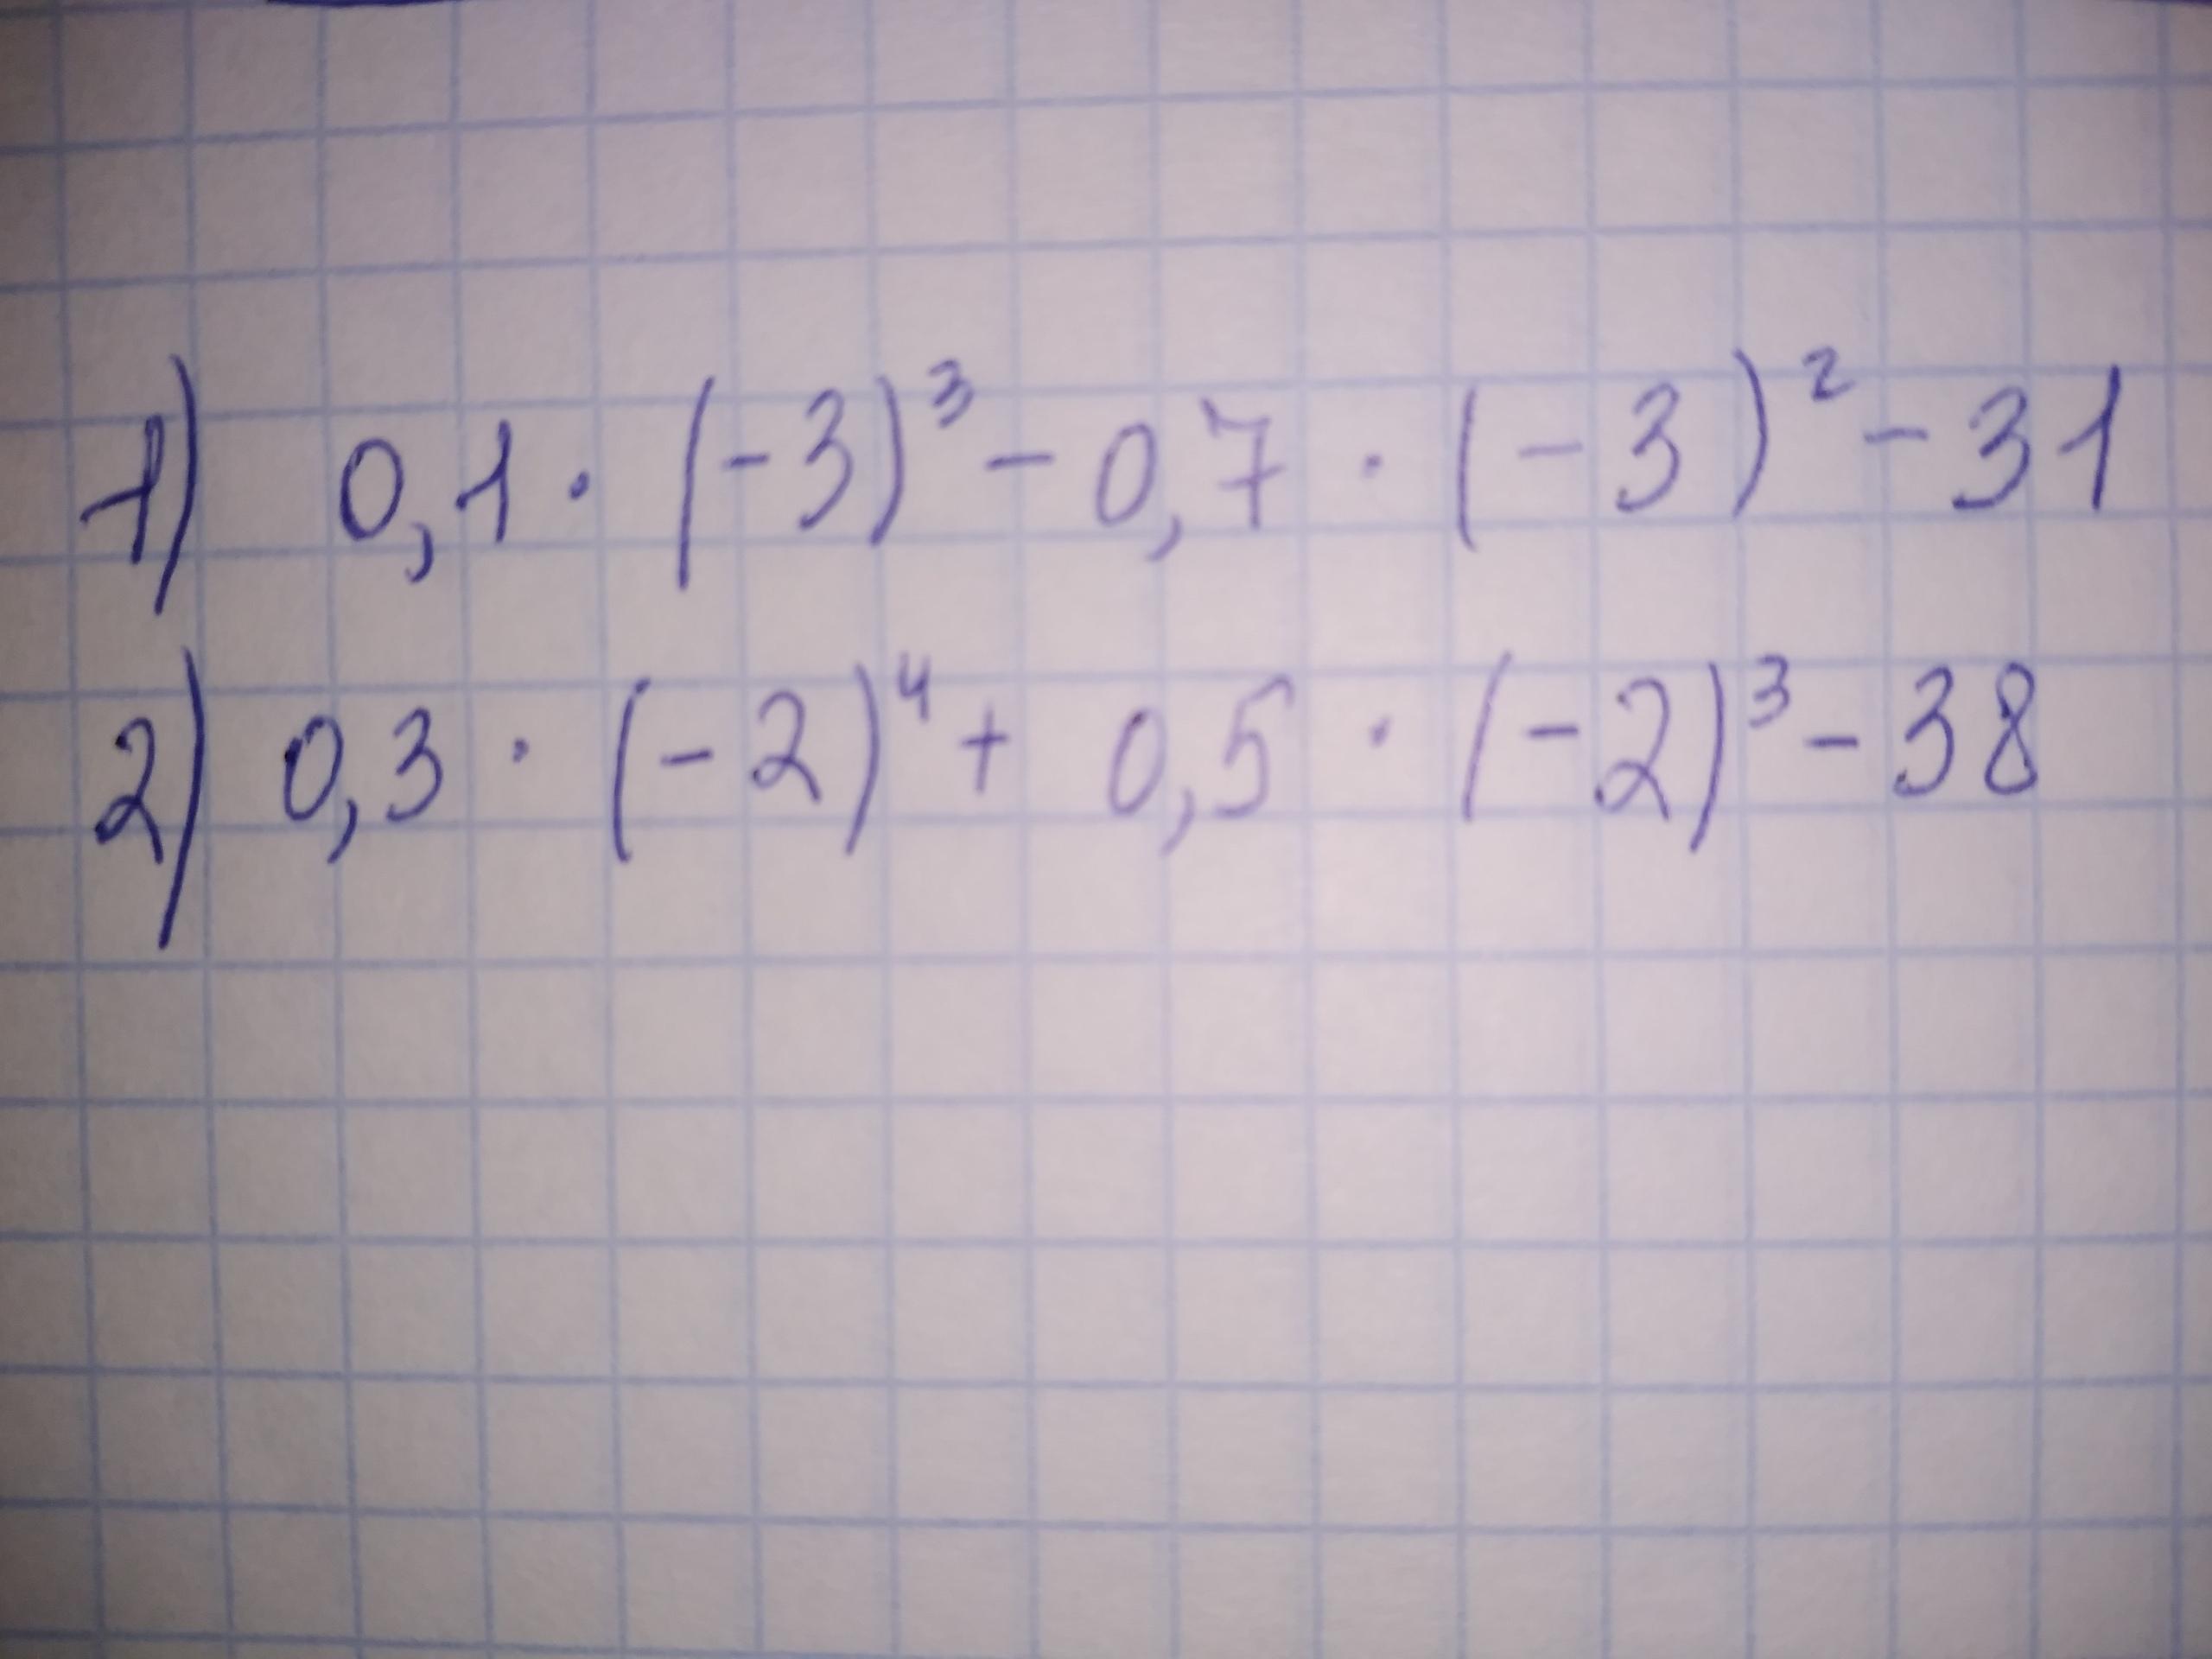 1) 0,1 · (-3)³ - 0,7 · (-3)² - 31
2) 0,3 · (-2)⁴ + 0,5 · (-2)³ - 38